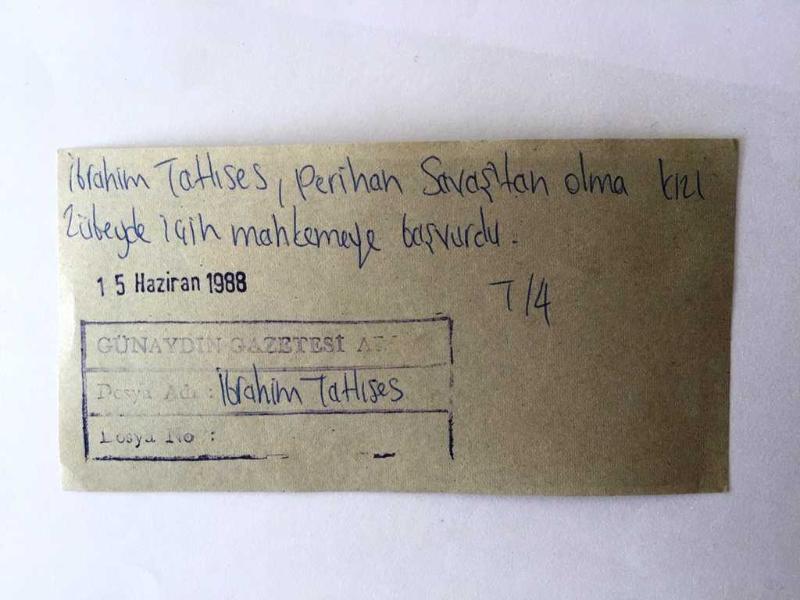 İbrahim Tatlıses, Perihan Savaş'tan olma kızı
Zübeyde için mahkemeye başvurdu.
15 Haziran 1988
T/4
GÜNAYDIN GAZETESİ
Dosya Adı : İbrahim Tatlıses
Dosya No :